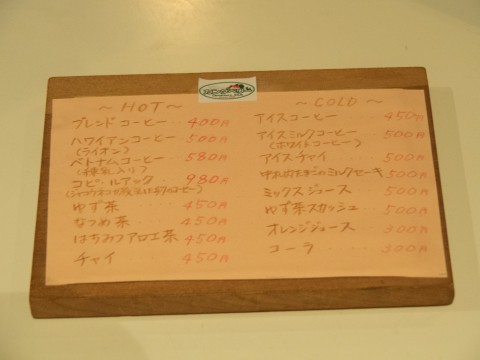 ～HOT～
ブレンドコーヒー・・400円
ハワイアンコーヒー・・500円
(ライオン)
ベトナムコーヒー・・580円
(練乳入り)
コピ・ルアック・・980円
ゆず茶・・・450円
なつめ茶・・・450円
はちみつアロエ茶・・450円
チャイ・・・450円
～COLD～
アイスコーヒー・・・450円
アイスミルクコーヒー・・500円
(ホワイトコーヒー)
アイスチャイ・・・500円
ミルクセーキ・・500円
ミックスジュース・・・500円
ゆず茶スカッシュ・・500円
オレンジジュース・・300円
コーラ・・・300円